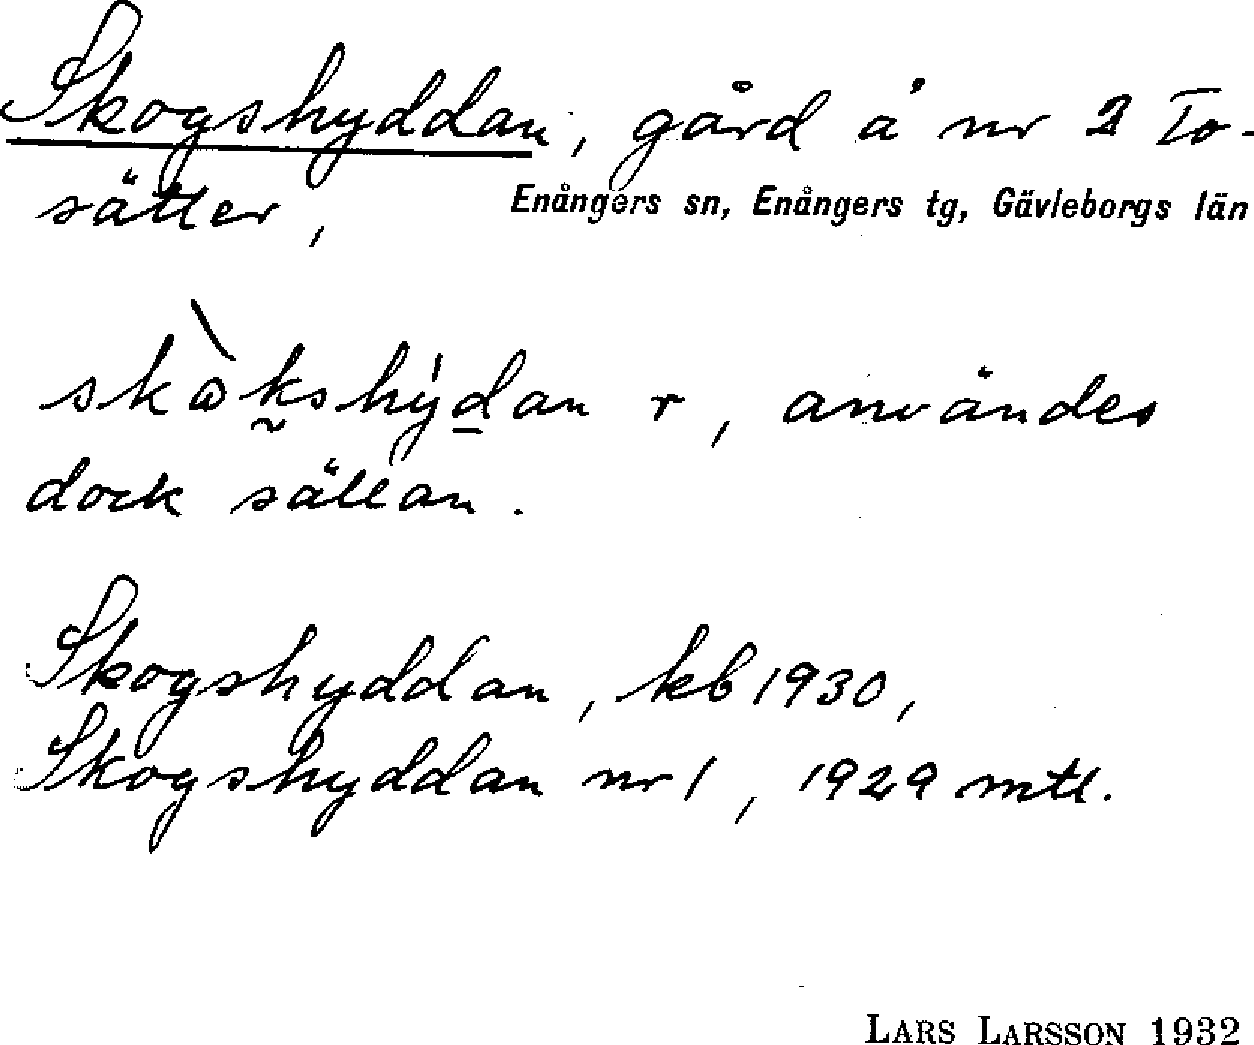 Skogshyddan, gård å nr 2 To-
sätter, Enångers sn, Enångers tg, Gävleborgs län
skò̀kshýdan r, användes
dock sällan.
Skogshyddan, kb 1930,
Skogshyddan nr 1, 1929 mtl.
LARS LARSSON 1932